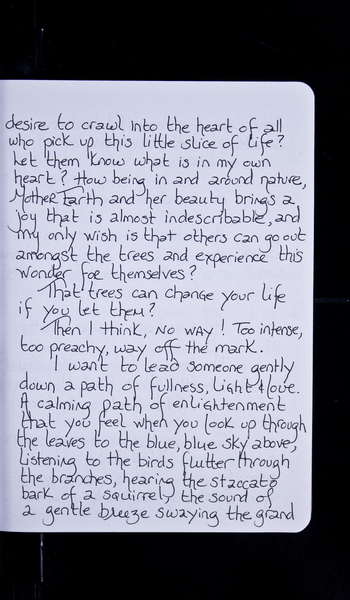 desire to crawl into the heart of all
who pick up this little slice of life?
Let them know what is in my own
heart? How being in and around nature,
Mother Earth and her beauty brings a
joy that is almost indescribable, and
my only wish is that others can go out
amongst the trees and experience this
wonder for themselves?
That trees can change your life
if you let them?
Then I think, no way! Too intense,
too preachy, way off the mark.
I want to lead someone gently
down a path of fullness, light & love.
A calming path of enlightenment
that you feel when you look up through
the leaves to the blue, blue sky above,
listening to the birds flutter through
the branches, hearing the staccato
bark of a squirrel, the sound of
a gentle breeze swaying the grand